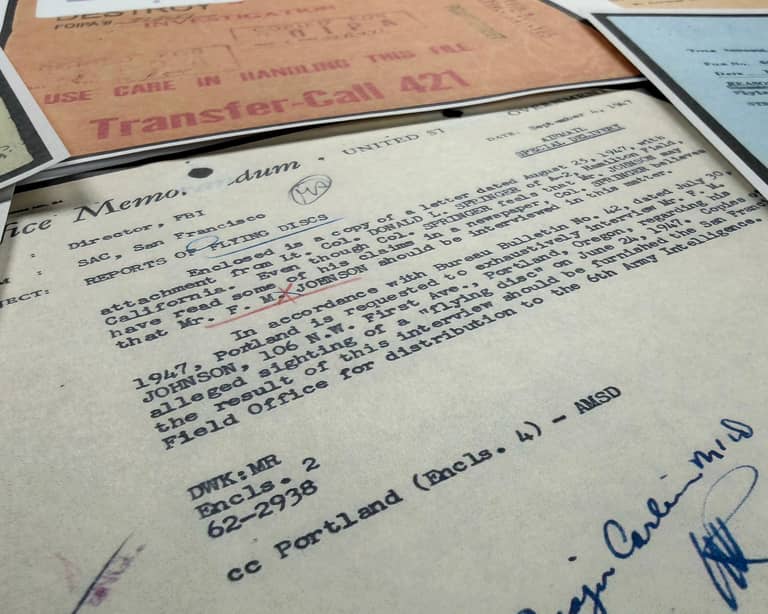 DESTROY
FOIPA #
INVESTIGATION
USE CARE IN HANDLING THIS FILE
Transfer-Call 421
ice Memorandum • UNITED ST
DATE: September 4, 1947
AIRMAIL
SPECIAL DELIVERY
Director, FBI
SAC, San Francisco
JECT: REPORTS OF FLYING DISCS
Enclosed is a copy of a letter dated August 25, 1947, with
attachment from Lt. Col. DONALD L. SPRINGER of A-2, Hamilton Field,
California. Even though Col. SPRINGER feels that Mr. JOHNSON may
have read some of his claims in a newspaper, Col. SPRINGER believes
that Mr. F. M. JOHNSON should be interviewed in this matter.
In accordance with Bureau Bulletin No. 42, dated July 30,
1947, Portland is requested to exhaustively interview Mr. F. M.
JOHNSON, 106 N.W. First Ave., Portland, Oregon, regarding his
alleged sighting of a "flying disc" on June 24, 1947. Copies of
the result of this interview should be furnished the San Fran
Field Office for distribution to the 6th Army intelligence.
DWK:MR
Encls. 2
62-2938
cc Portland (Encls. 4) - AMSD